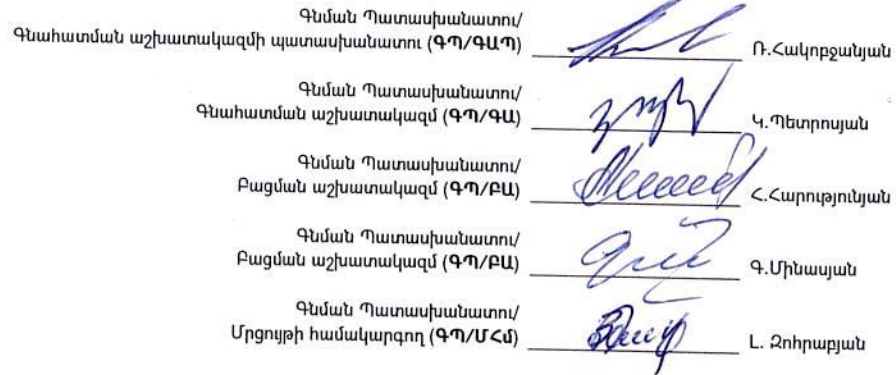 Գնման Պատասխանատու/
Գնահատման աշխատակազմի պատասխանատու (ԳՊ/ԳԱՊ) Ռ.Հակոբջանյան
Գնման Պատասխանատու/
Գնահատման աշխատակազմ (ԳՊ/ԳԱ) Կ.Պետրոսյան
Գնման Պատասխանատու/
Բացման աշխատակազմ (ԳՊ/ԲԱ) Հ.Հարությունյան
Գնման Պատասխանատու/
Բացման աշխատակազմ (ԳՊ/ԲԱ) Գ.Մինասյան
Գնման Պատասխանատու/
Մրցույթի համակարգող (ԳՊ/ՄՀմ) Լ. Զոհրաբյան